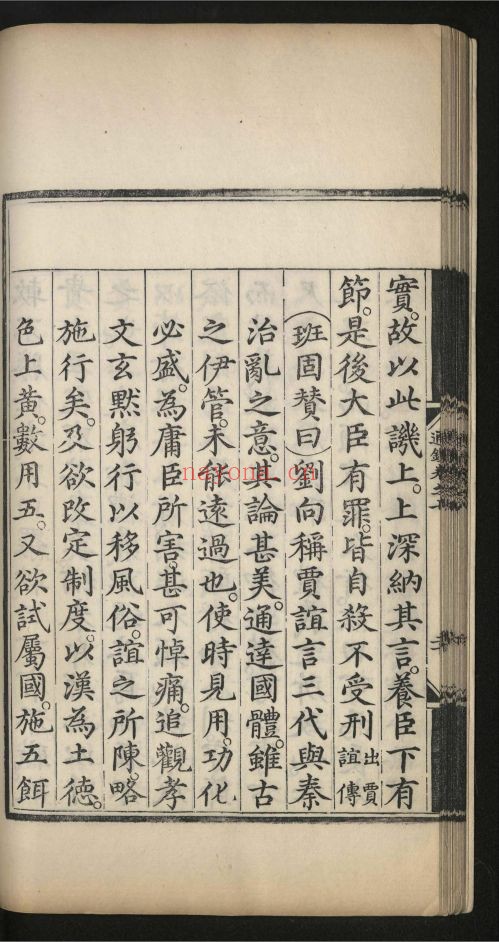 實。故以此譏上。上深納其言。養臣下有
節。是後大臣有罪。皆自殺不受刑出賈誼傳
(班固贊曰)劉向稱賈誼言三代與秦
治亂之意。其論甚美。通達國體。雖古
之伊管。未能遠過也。使時見用。功化
必盛。為庸臣所害。甚可悼痛。追觀孝
文玄默躬行以移風俗。誼之所陳。略
施行矣。及欲改定制度。以漢為土德。
色上黃。數用五。又欲試屬國。施五餌
nayona.cn